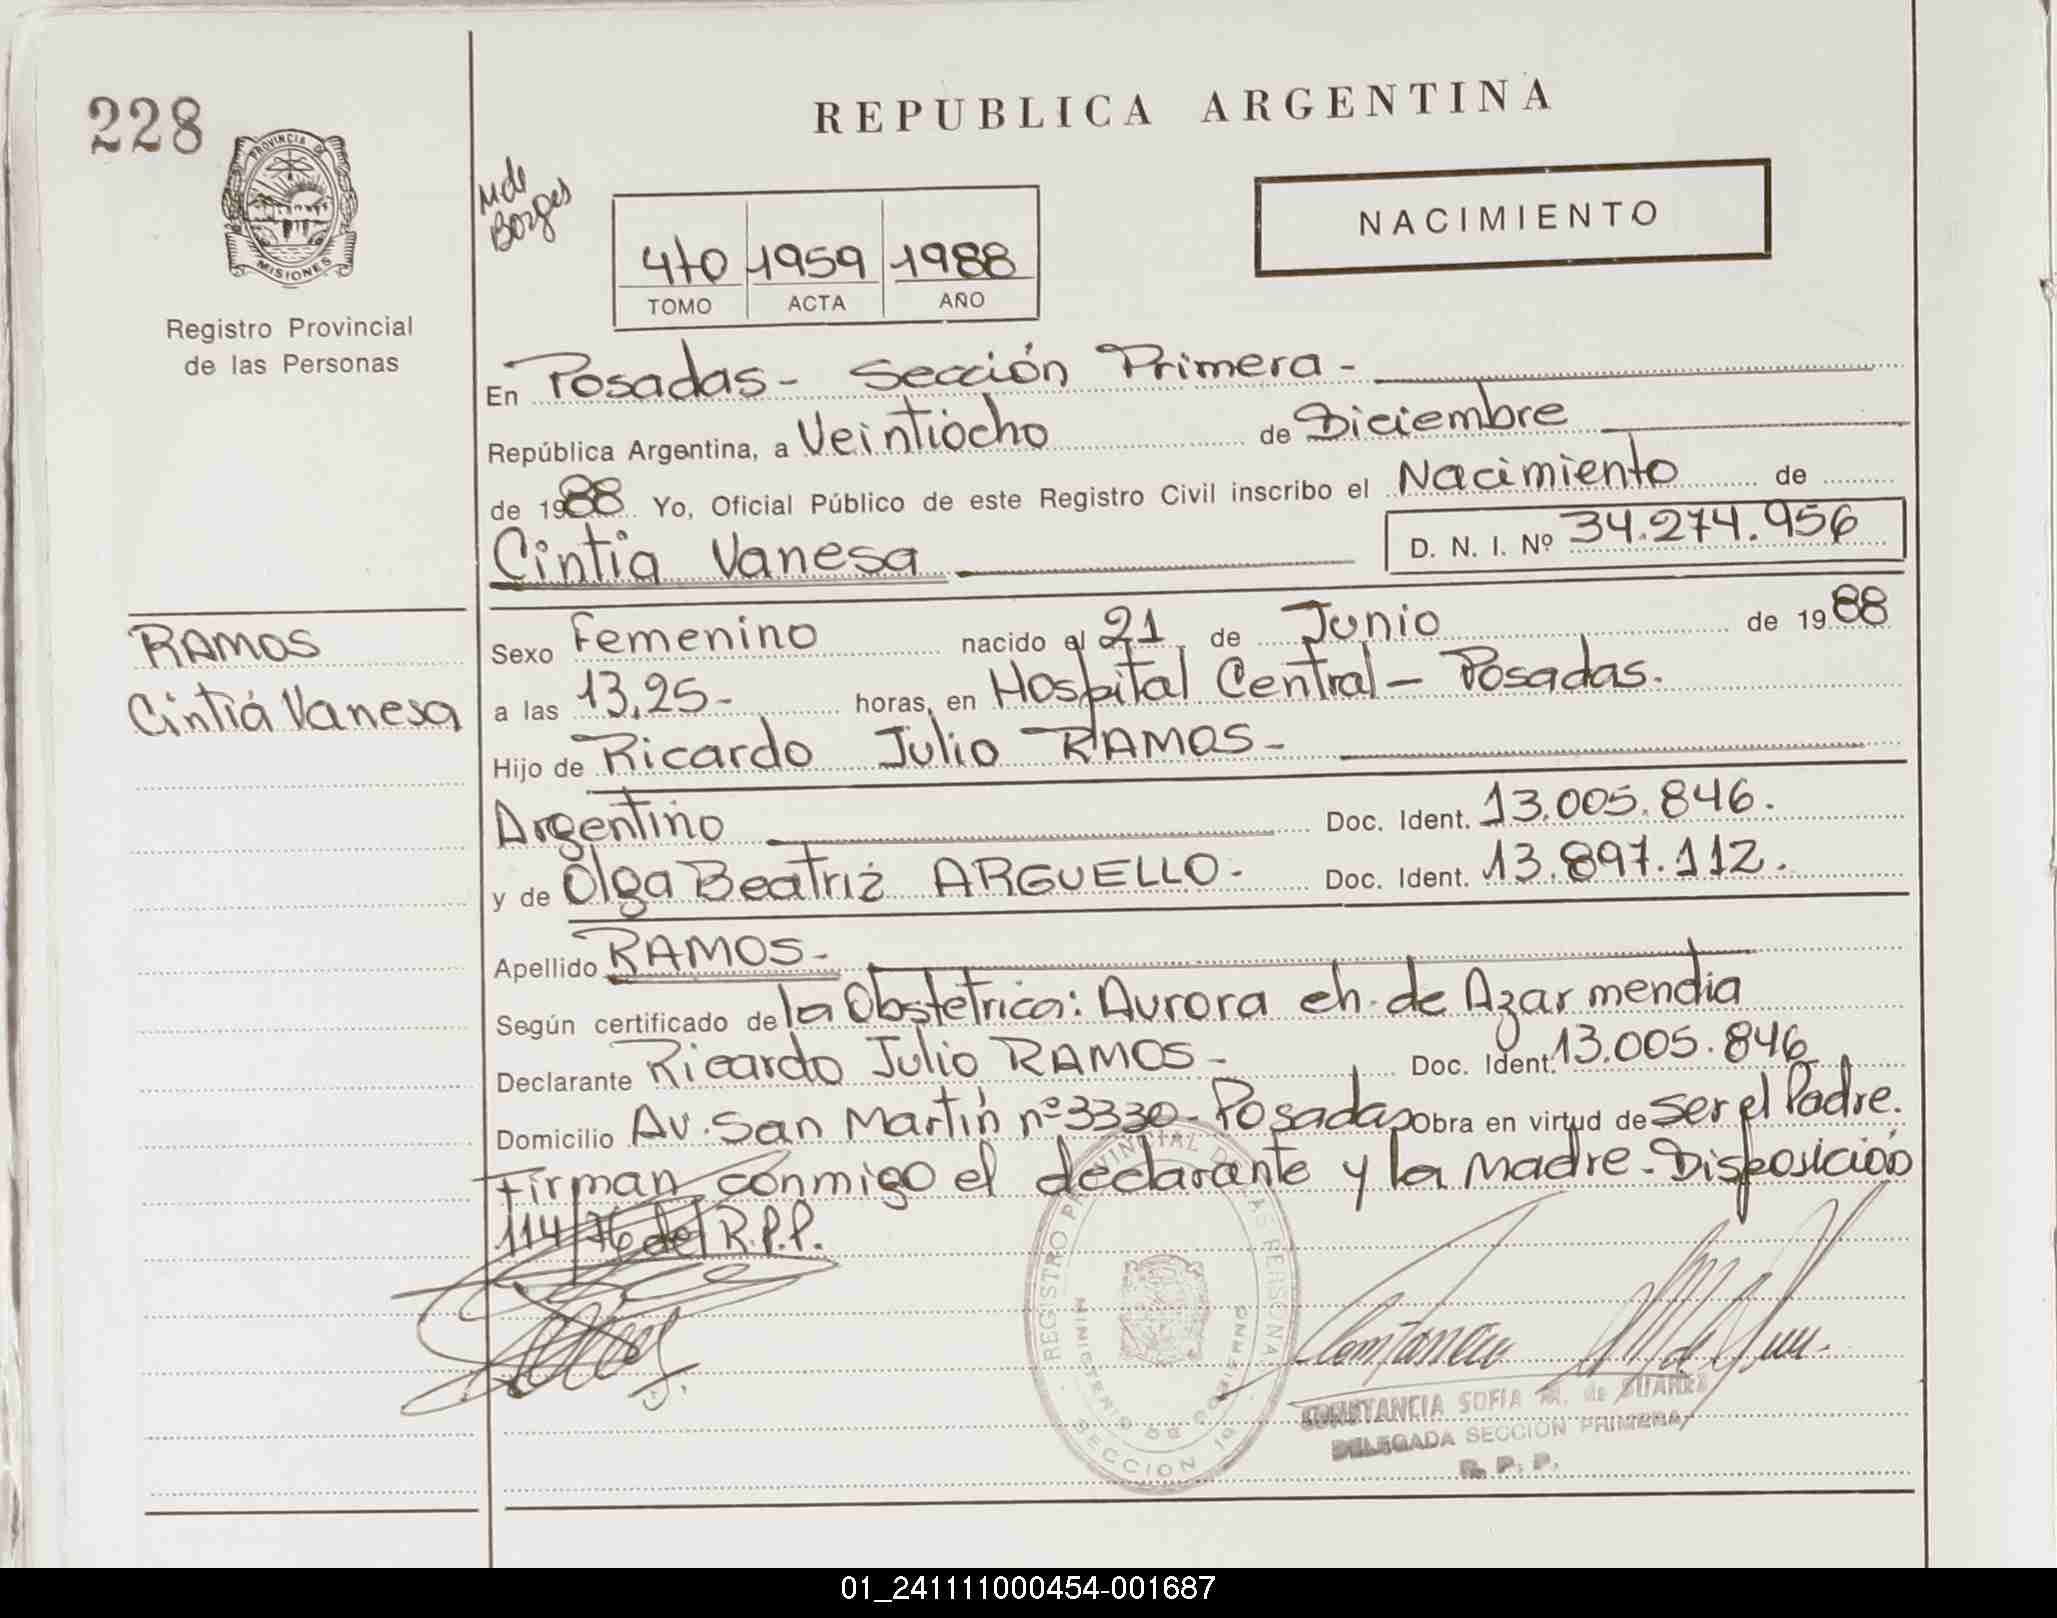 228
REPUBLICA ARGENTINA
PROVINCIA DE
MISIONES
Registro Provincial
de las Personas
M de
Borges
NACIMIENTO
1959 1988
TOMO ACTA AÑO
En Posadas - Sección Primera -
República Argentina, a Veintiocho de Diciembre
de 1988 Yo, Oficial Público de este Registro Civil inscribo el Nacimiento de
Cintia Vanesa D. N. I. Nº 34.274.956
RAMOS
Cintia Vanesa
Sexo Femenino nacido el 21 de Junio de 1988
a las 13,25- horas, en Hospital Central - Posadas.
Hijo de Ricardo Julio RAMOS-
Argentino Doc. Ident. 13.005.846.
y de Olga Beatriz ARGUELLO- Doc. Ident. 13.897.112.
Apellido RAMOS-
Según certificado de la Obstetrica: Aurora ch. de Azarmendia
Declarante Ricardo Julio RAMOS- Doc. Ident. 13.005.846
Domicilio Av. San Martín nº 3330- Posadas Obra en virtud de ser el Padre.
Firman conmigo el declarante y la madre- Disposición
114/76 del R.P.P.
REGISTRO PROVINCIAL DE LAS PERSONAS
MINISTERIO DE GOBIERNO
SECCION 1ª
CONSTANCIA SOFIA M. de SUAREZ
DELEGADA SECCION PRIMERA
R. P. P.
01_241111000454-001687